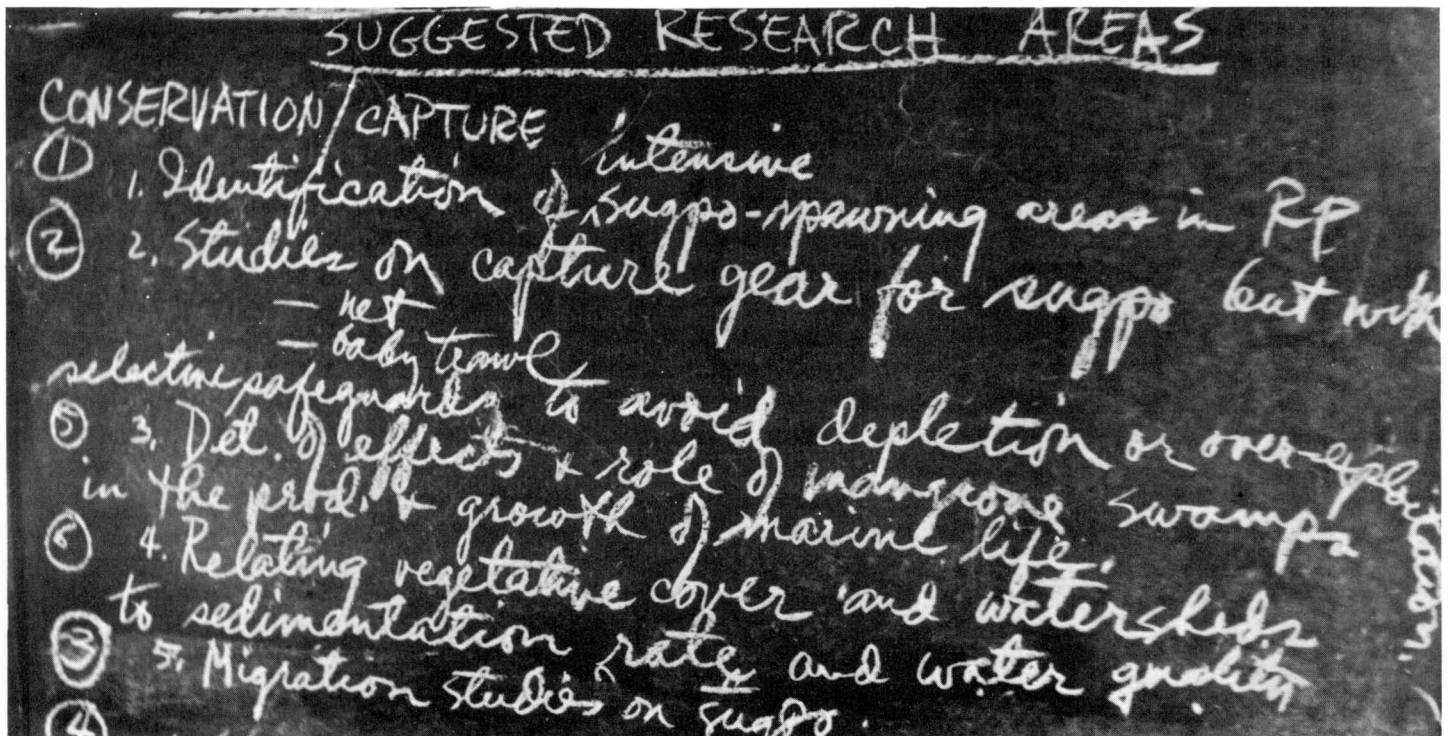 SUGGESTED RESEARCH AREAS
CONSERVATION/CAPTURE
intensive
① 1. Identification of sugpo-spawning areas in RP
② 2. Studies on capture gear for sugpo but with
— net
— baby trawl
selective safeguards to avoid depletion or over-exploitation.
⑤ 3. Det. of effects & role of mangrove swamps
in the prod. & growth of marine life.
⑥ 4. Relating vegetative cover and watersheds
to sedimentation rate and water quality.
③ 5. Migration studies on sugpo.
④